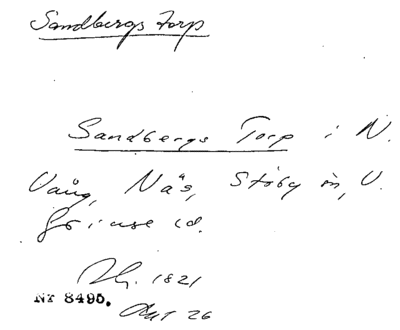 Sandbergs Torp
Sandbergs Torp i N.
Vång, Näs, Stoby sn, V.
Göinge hd.
Ak. 1821
Nr 8495. Akt 26